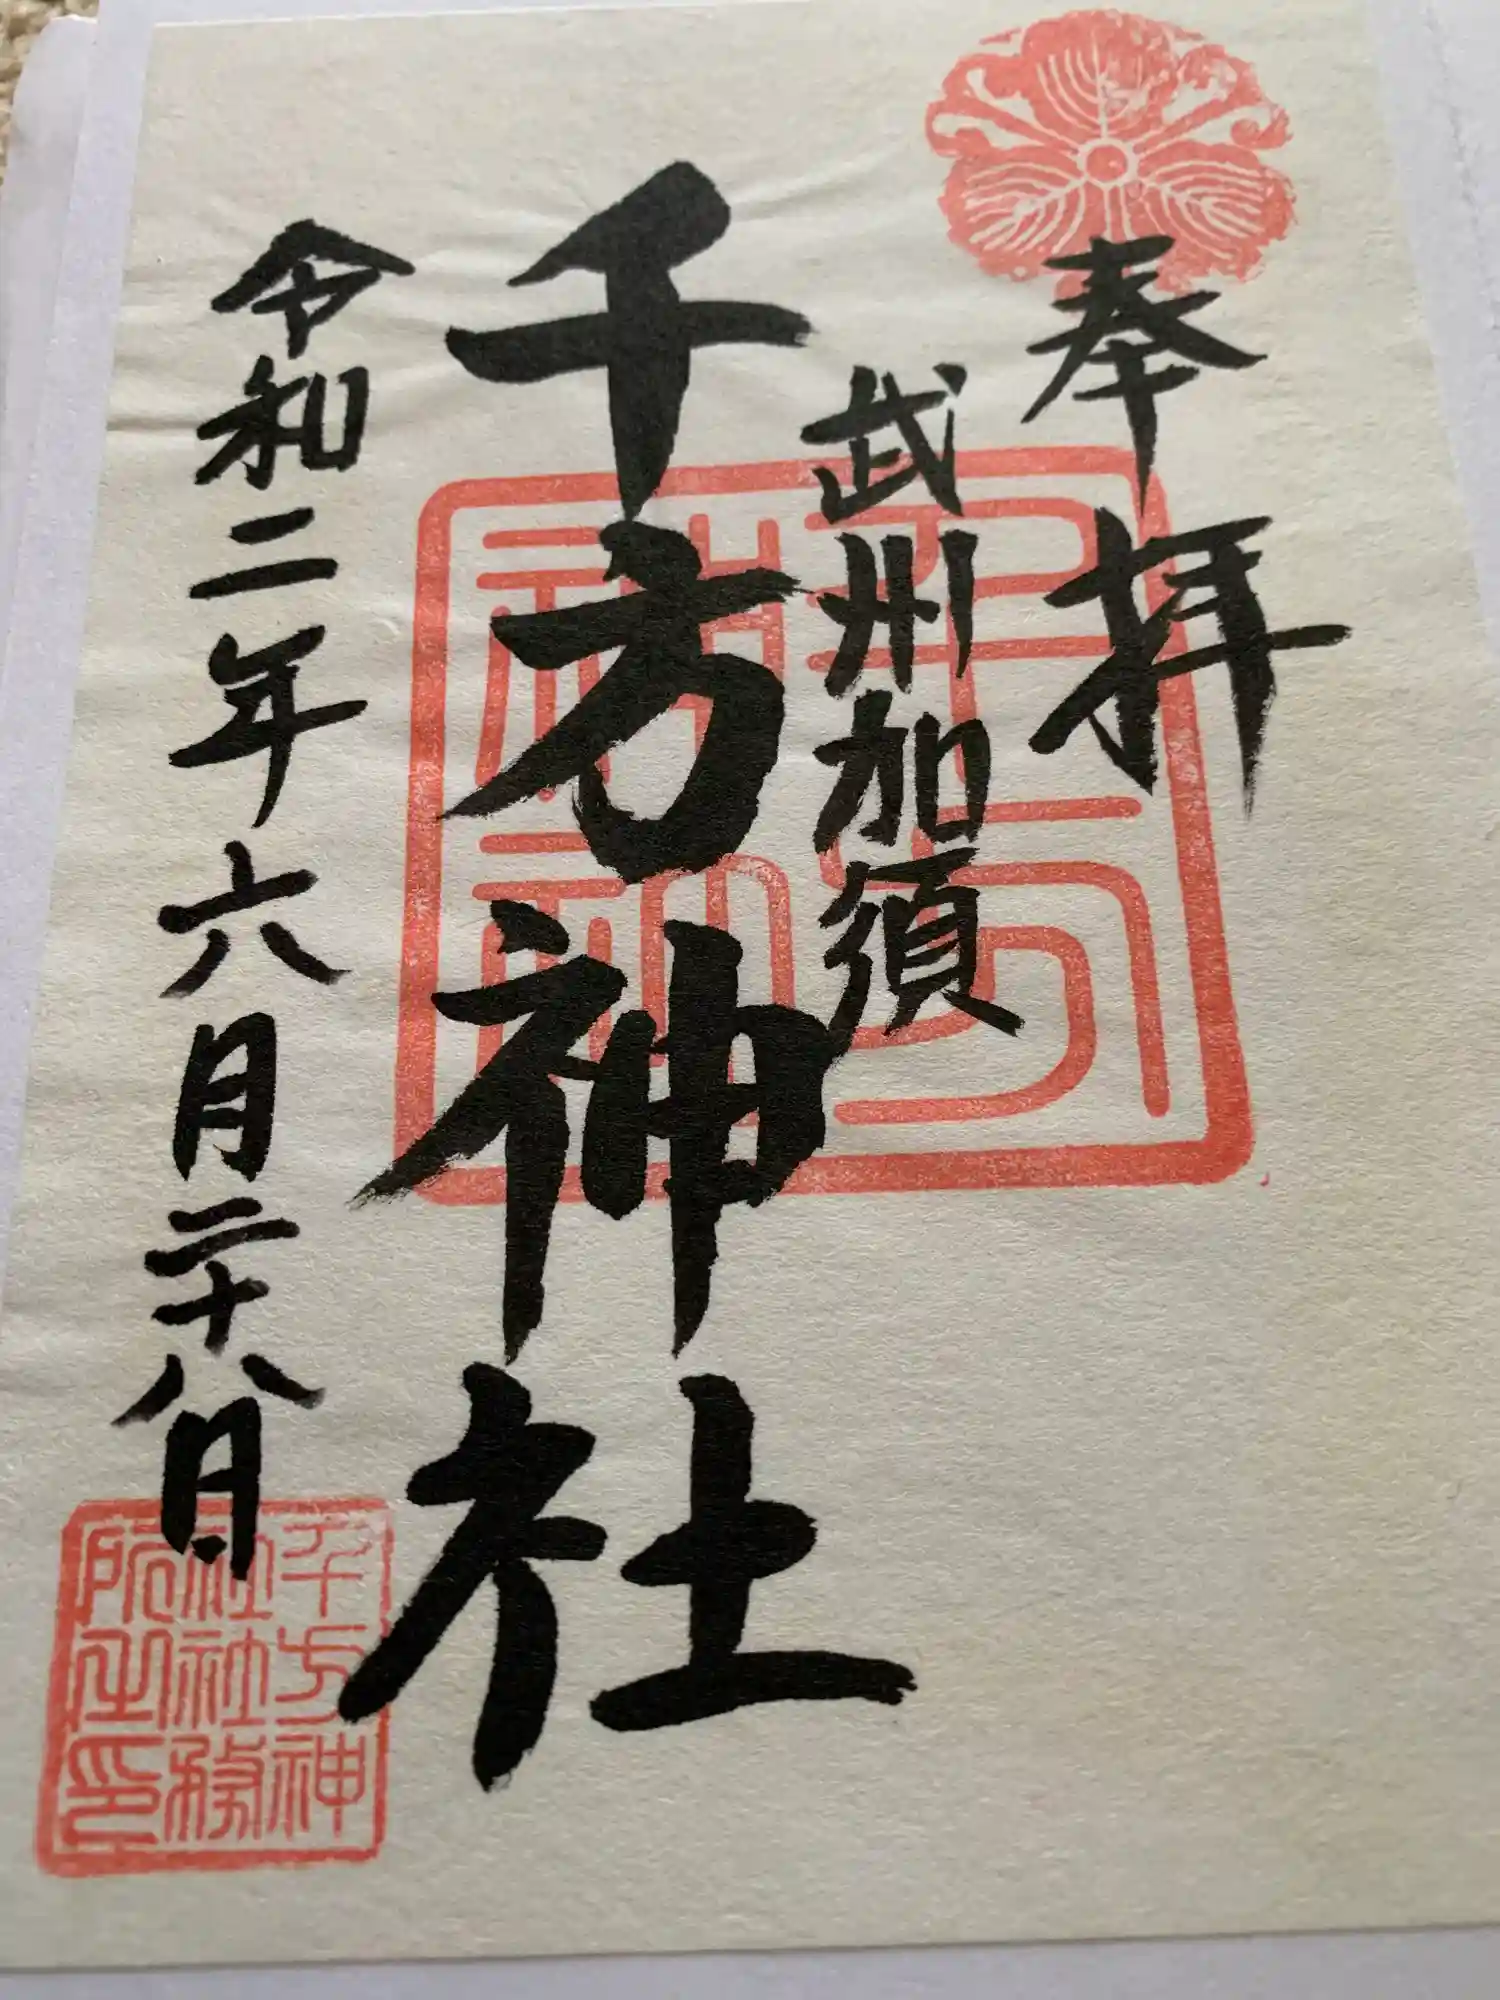 奉拝
武州加須
千方神社
令和二年六月二十八日
千方神社
千方神
社社務
所之印